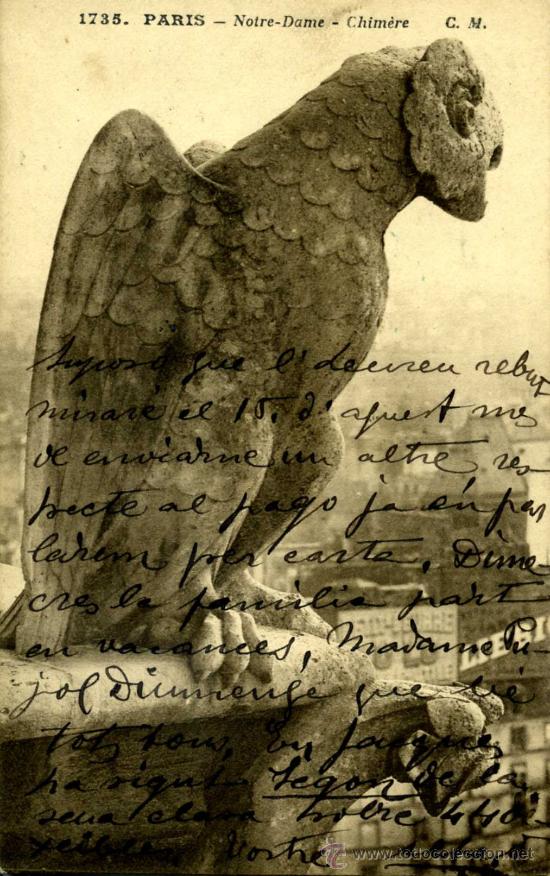 1735. PARIS – Notre-Dame – Chimère C. M.
Suposo que l'deureu rebut
miraré el 15. d'aquest mes
de enviarne un altre res
pecte al pago ja en par
larem per carta. Dime-
cres la familia part
en vacances, Madame Pu-
jol Diumenge que
tot bou. En Jacques
ha sigut Segon de la
seua classe sobre 44
Vostre
www.todocoleccion.net